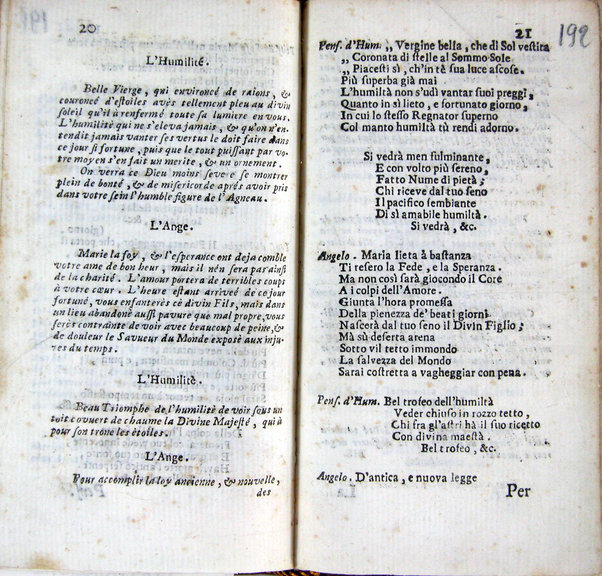 20
L'Humilité.
Belle Vierge, qui environcé de raions, &
couroncé d'estoiles avés tellement pleu au divin
soleil qu'il à renfermé toute sa lumiere en vous.
L'humilité qui ne s'eleva jamais, & qu'on n'en-
tendit jamais vanter ses vertus le doit faire dans
ce jour si fortuné, puis que le tout puissant par vo-
tre moyen s'en fait un merite, & un ornement.
On verra ce Dieu moins severe se montrer
plein de bonté, & de misericorde aprés avoir pris
dans votre sein l'humble figure de l'Agneau.
L'Ange.
Marie la foy, & l'esperance ont deja comblé
votre ame de bon heur, mais il nén sera par ainsi
de la charité. L'amour portera de terribles coups
à votre cœur. L'heure estant arriveé de ce jour
fortuné, vous enfanterés ce divin Fils, mais dans
un lieu abandoné aussi pavure que mal propre, vous
serés contrainte de voir avec beaucoup de peine, &
de douleur le Sauveur du Monde exposé aux inju-
res du temps.
L'Humilité.
Beau Triomphe de l'humilité de voir sous un
toit couvert de chaume la Divine Majesté, qui à
pour son trone les étoiles.
L'Ange.
Pour accomplir la loy ancienne, & nouvelle,
des
21
192
Pens. d'Hum. ,, Vergine bella, che di Sol vestita
,, Coronata di stelle al Sommo Sole
,, Piacesti sì, ch'in tè sua luce ascose.
Più superba già mai
L'humiltà non s'udì vantar suoi preggi,
Quanto in sì lieto, e fortunato giorno,
In cui lo stesso Regnator superno
Col manto humiltà tù rendi adorno.
Si vedrà men fulminante,
E con volto più sereno,
Fatto Nume di pietà;
Chi riceve dal tuo seno
Il pacifico sembiante
Di sì amabile humiltà.
Si vedrà, &c.
Angelo. Maria lieta à bastanza
Ti resero la Fede, e la Speranza.
Ma non così sarà giocondo il Core
A i colpi dell'Amore.
Giunta l'hora promessa
Della pienezza de' beati giorni
Nascerà dal tuo seno il Divin Figlio;
Mà sù deserta arena
Sotto vil tetto immondo
La salvezza del Mondo
Sarai costretta a vagheggiar con pena.
Pens. d'Hum. Bel trofeo dell'humiltà
Veder chiuso in rozzo tetto,
Chi fra gl'astri hà il suo ricetto
Con divina maestà.
Bel trofeo, &c.
Angelo. D'antica, e nuova legge
Per